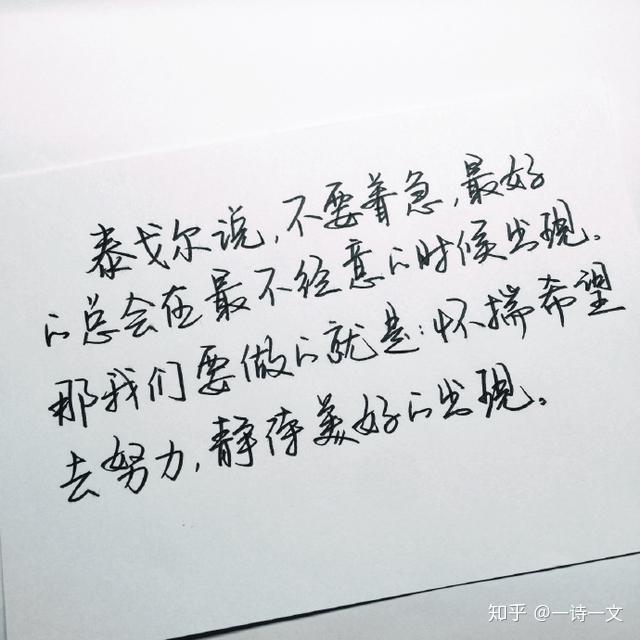 泰戈尔说,不要着急,最好
的总会在最不经意的时候出现。
那我们要做的就是:怀揣希望
去努力,静待美好的出现。
知乎 @一诗一文